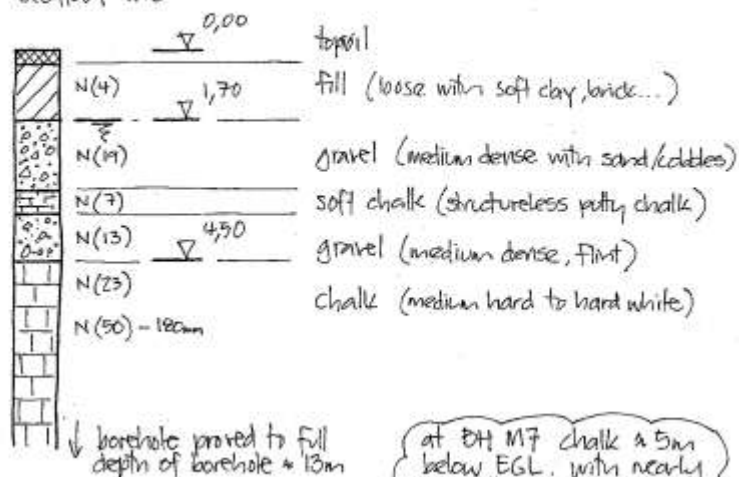 0,00
topsoil
N(4)
fill (loose with soft clay, brick...)
1,70
N(19)
gravel (medium dense with sand/cobbles)
N(7)
soft chalk (structureless putty chalk)
N(13)
4,50
gravel (medium dense, flint)
N(23)
chalk (medium hard to hard white)
N(50) - 180mm
↓ borehole proved to full
depth of borehole ≈ 13m
at BH M7 chalk ≈ 5m
below EGL, with nearly